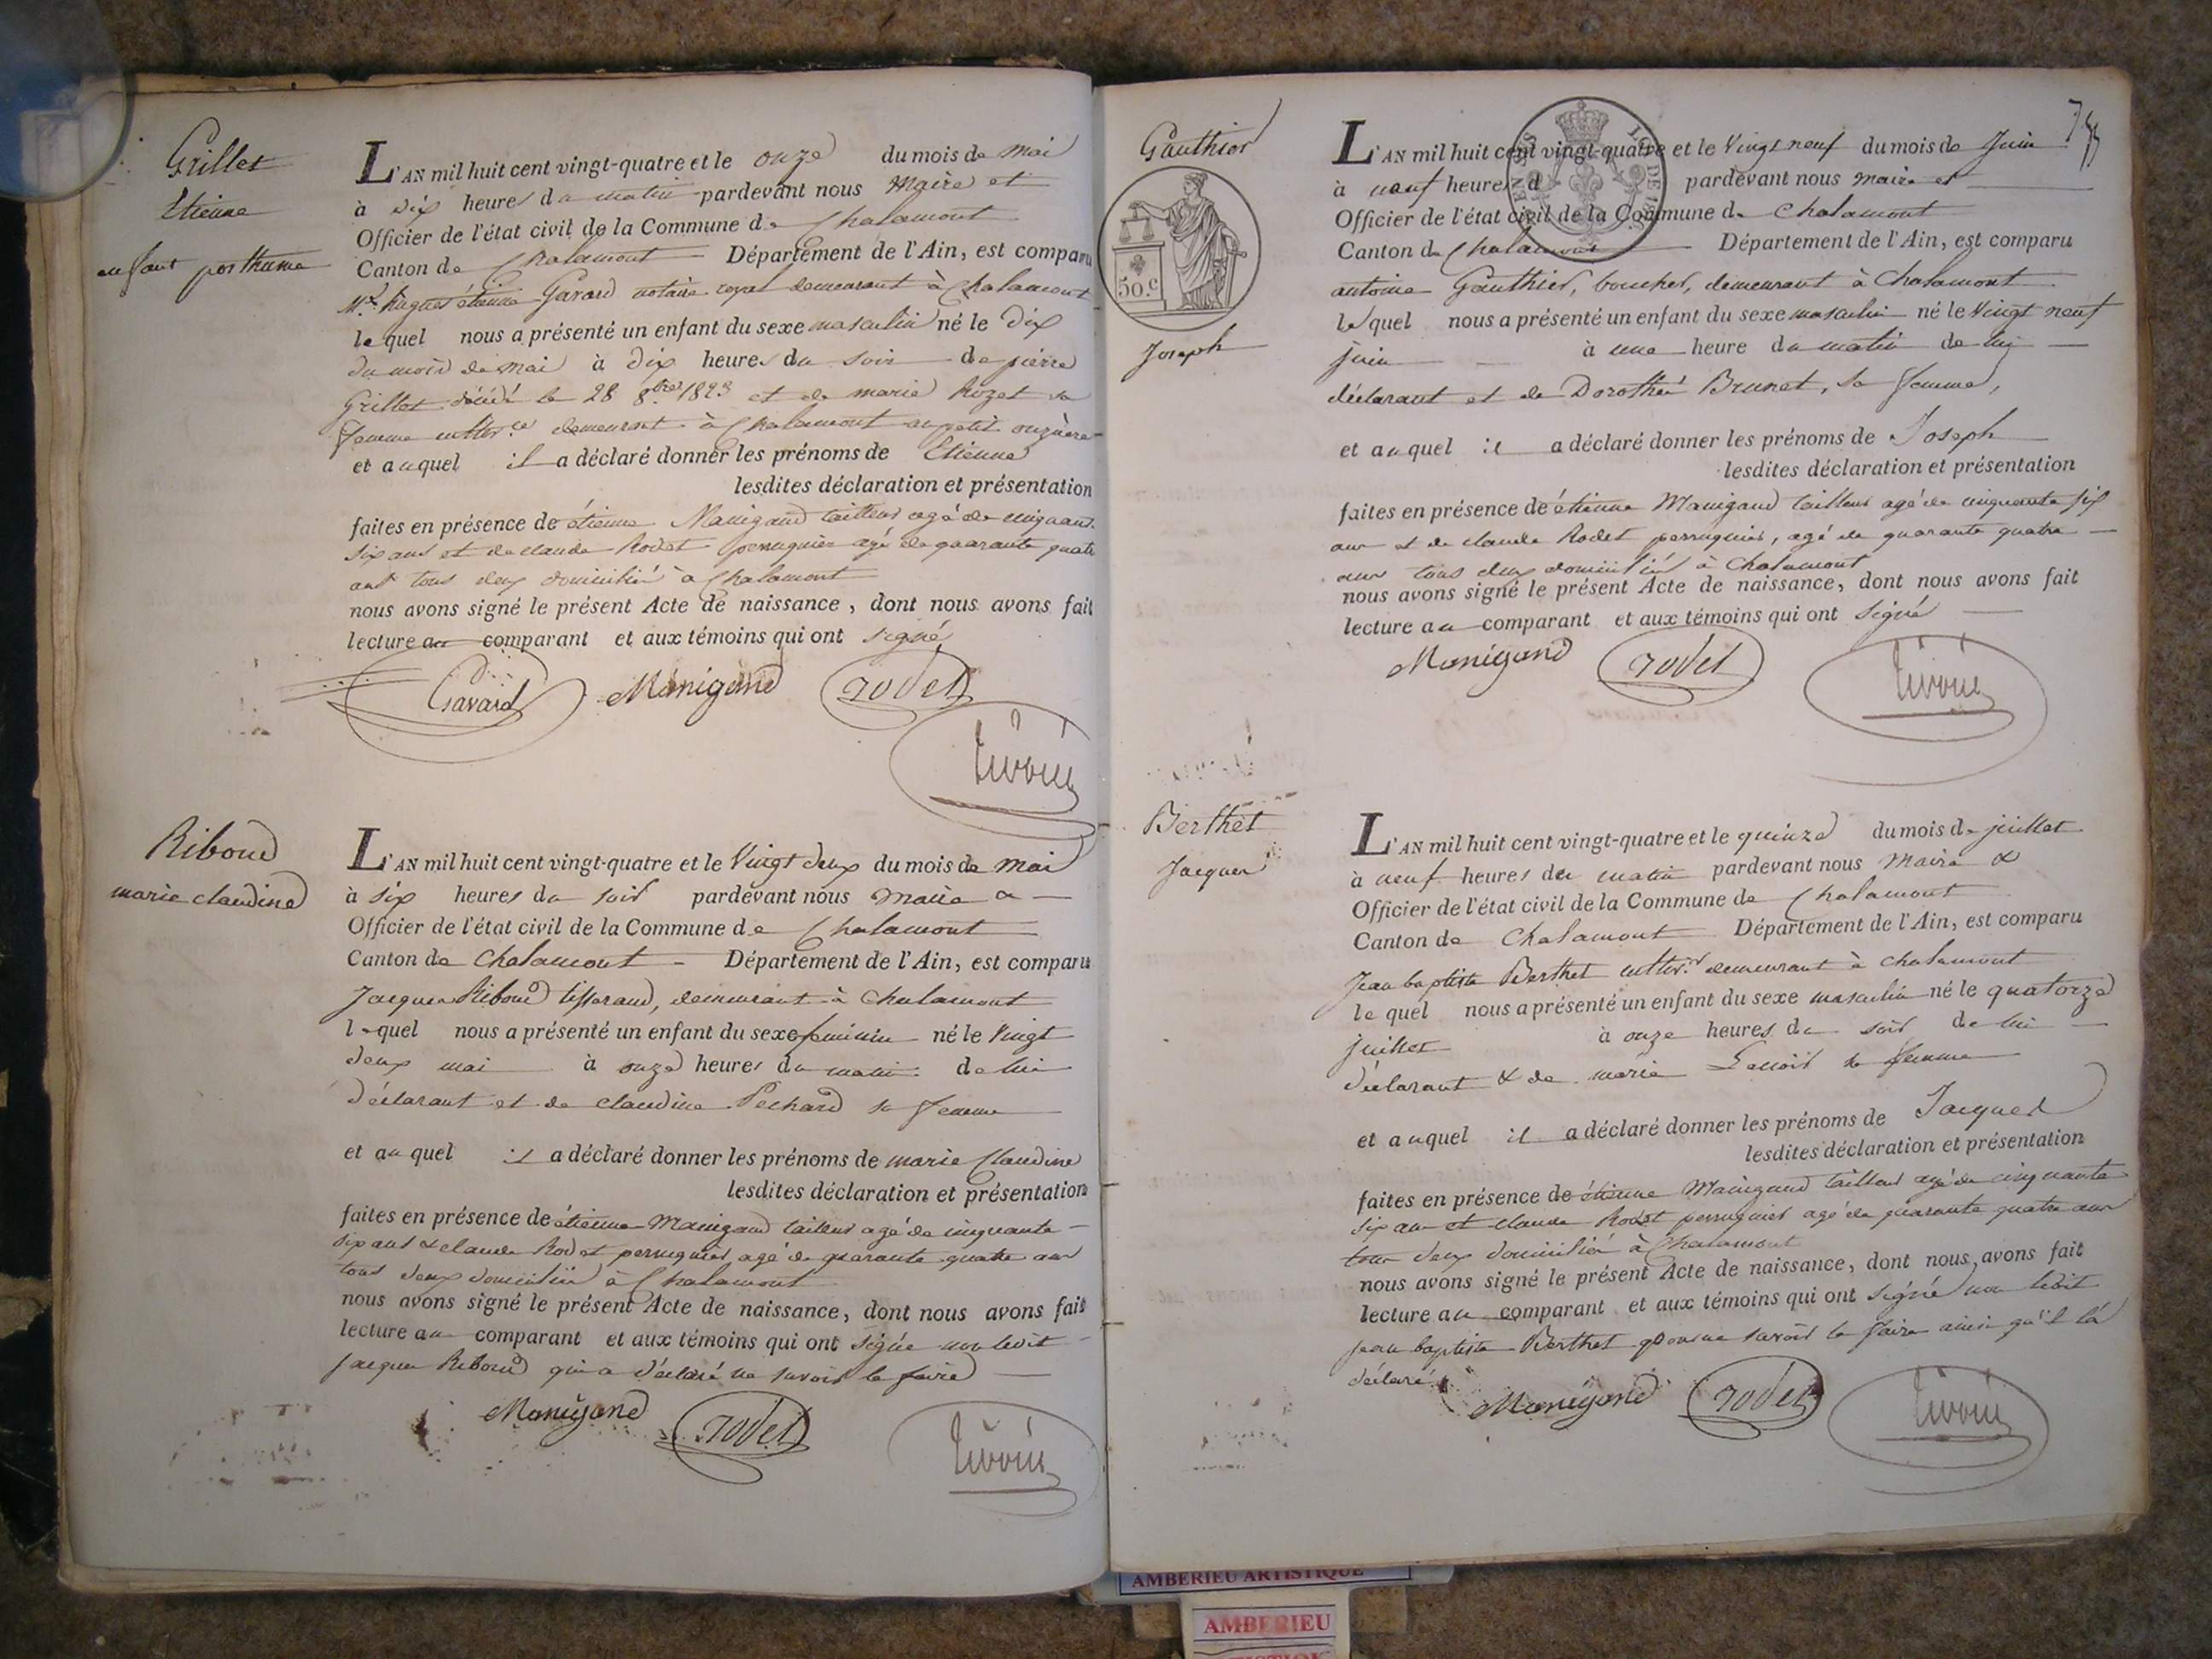 Grillet
Etienne
enfant posthume
L'AN mil huit cent vingt-quatre et le onze du mois de mai
à dix heures du matin pardevant nous Maire et
Officier de l'état civil de la Commune de Chalamont
Canton de Chalamont Département de l'Ain, est comparu
Mr. hugues étienne Gavard notaire royal demeurant à Chalamont
lequel nous a présenté un enfant du sexe masculin né le dix
du mois de mai à dix heures du soir de pierre
Grillet décédé le 28 8bre 1823 et de marie Rozet sa
femme demeurant à Chalamont au petit
et auquel il a déclaré donner les prénoms de Etienne
lesdites déclaration et présentation
faites en présence de étienne Manigand tailleur agé de cinquante
six ans et de claude Rodet perruquier agé de quarante quatre
ans tous deux domiciliés à Chalamont
nous avons signé le présent Acte de naissance, dont nous avons fait
lecture au comparant et aux témoins qui ont signé
Gavard Manigand rodet
Riboud
marie claudine
L'AN mil huit cent vingt-quatre et le Vingt deux du mois de mai
à six heures du soir pardevant nous maire &
Officier de l'état civil de la Commune de Chalamont
Canton de Chalamont Département de l'Ain, est comparu
Jacques Riboud tisserand, demeurant à Chalamont
lequel nous a présenté un enfant du sexe feminin né le Vingt
deux mai à onze heures du matin de lui
déclarant et de claudine Pechard sa femme
et auquel il a déclaré donner les prénoms de marie Claudine
lesdites déclaration et présentation
faites en présence de étienne Manigand tailleur agé de cinquante
six ans & claude Rodet perruquier agé de quarante quatre ans
tous deux domiciliés à Chalamont
nous avons signé le présent Acte de naissance, dont nous avons fait
lecture au comparant et aux témoins qui ont signé non ledit
jacques Riboud qui a déclaré ne savoir le faire
Manigand rodet
Gauthier
50.c
Joseph
L'AN mil huit cent vingt-quatre et le Vingt neuf du mois de Juin
à neuf heures d pardevant nous maire et
Officier de l'état civil de la Commune de Chalamont
Canton de Chalamont Département de l'Ain, est comparu
antoine Gauthier, boucher, demeurant à Chalamont
lequel nous a présenté un enfant du sexe masculin né le Vingt neuf
juin à une heure du matin de lui
déclarant et de Dorothée Brunet, sa femme,
et auquel il a déclaré donner les prénoms de Joseph
lesdites déclaration et présentation
faites en présence de étienne Manigand tailleur agé de cinquante six
ans et de claude Rodet perruquier, agé de quarante quatre
ans tous deux domiciliés à Chalamont
nous avons signé le présent Acte de naissance, dont nous avons fait
lecture au comparant et aux témoins qui ont signé
Manigand rodet
Berthet
Jacques
L'AN mil huit cent vingt-quatre et le quinze du mois de juillet
à neuf heures du matin pardevant nous Maire &
Officier de l'état civil de la Commune de Chalamont
Canton de Chalamont Département de l'Ain, est comparu
Jean baptiste Berthet cultivr. demeurant à chalamont
lequel nous a présenté un enfant du sexe masculin né le quatorze
juillet à onze heures du soir de lui
déclarant & de marie Lenoir sa femme
et auquel il a déclaré donner les prénoms de Jacques
lesdites déclaration et présentation
faites en présence de étienne Manigand tailleur agé de cinquante
six ans et claude Rodet perruquier agé de quarante quatre ans
tous deux domiciliés à Chalamont
nous avons signé le présent Acte de naissance, dont nous avons fait
lecture au comparant et aux témoins qui ont signé non ledit
jean baptiste Berthet pour ne savoir le faire ainsi qu'il l'a
déclaré
Manigand rodet
AMBERIEU ARTISTIQUE
AMBERIEU